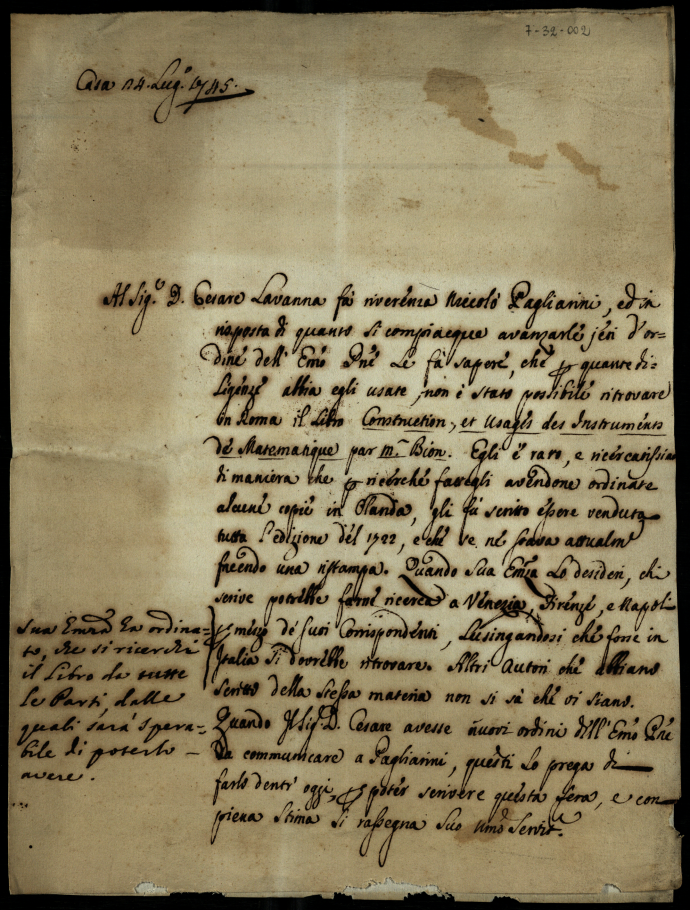 7-32-002
Casa 14. Lug.o 1745.
Al Sig.r D. Cesare Lavanna fà riverenza Niccolò Pagliarini, ed in
risposta di quanto si compiacque avanzarle jeri d'or-
dine dell' Emo Pne Le fà sapere, che quante di-
ligenze abbia egli usate, non è stato possibile ritrovare
in Roma il Libro Construction, et Usages des Instruments
de Matematique par m.r Bion. Egli è raro, e ricercatissimo
di maniera che ricerche fattegli avendone ordinate
alcune copie in Olanda, gli fù scritto essere venduta
tutta l'edizione del 1722, e che se ne stava attualmte
facendo una ristampa. Quando Sua Emza Lo desideri, chi
scrive potrebbe farne ricerca a Venezia, Firenze, e Napoli
mezzo de suoi Corrispondenti, Lusingandosi che forse in
Italia si dovrebbe ritrovare. Altri Autori che abbiano
scritto della stessa materia non si sà che vi siano.
Quando Il Sig.r D. Cesare avesse nuovi ordini dell' Emo Pne
da communicare a Pagliarini, questi Lo prega di
farlo dentr' oggi, poter scrivere questa sera, e con
piena Stima si rassegna Suo Umo Servit.e
Sua Emza ha ordina-
to, che si ricerchi
il Libro da tutte
le Parti, dalle
quali sarà spera-
bile di poterlo
avere.